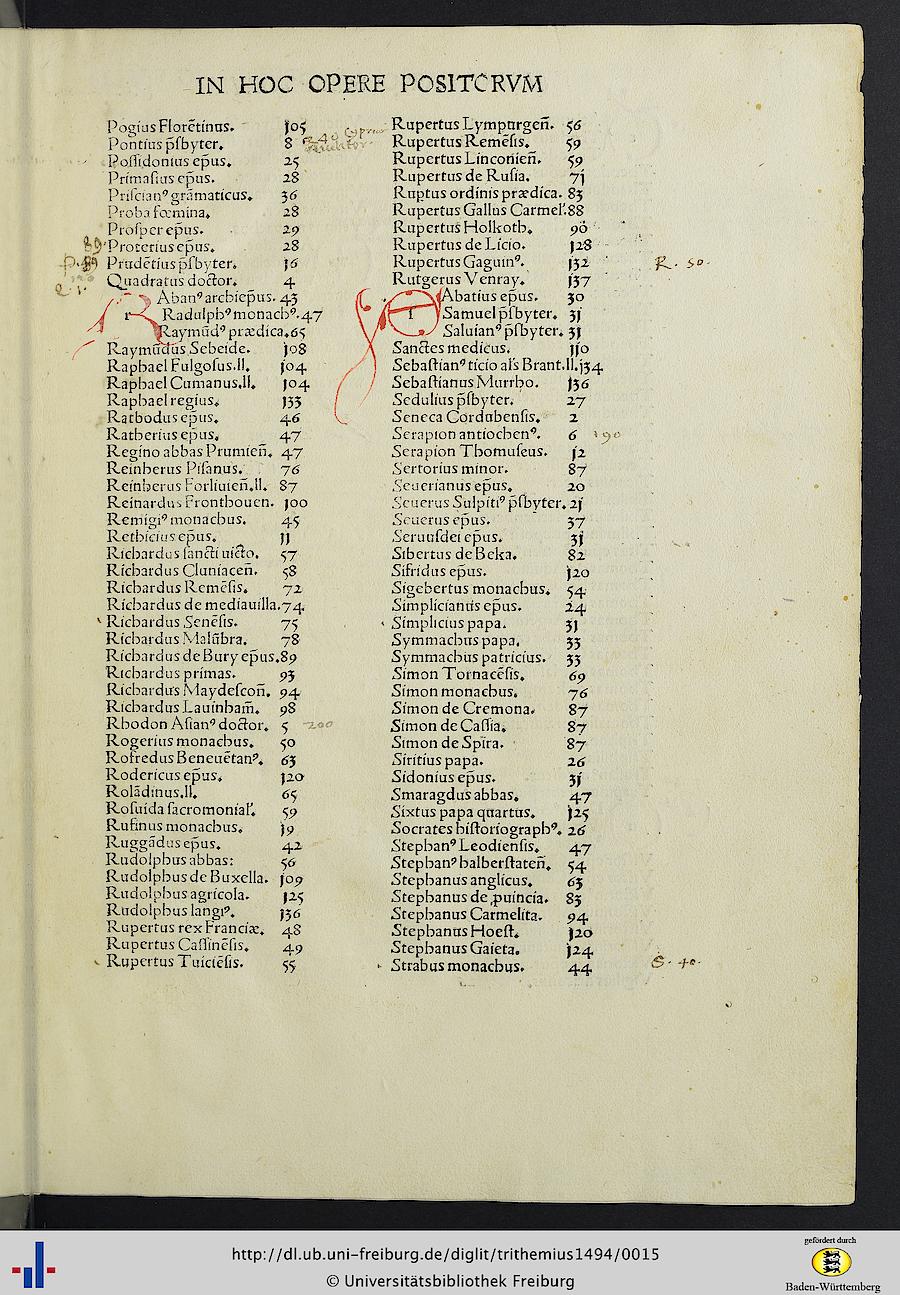 IN HOC OPERE POSITORVM
Pogius Florētinus. jo5
Pontius p̄sbyter. 8
Possidonius ep̄us. 25
Primasius ep̄us. 28
Priscianꝰ grāmaticus. 36
Proba fœmina. 28
Prosper ep̄us. 29
89. Proterius ep̄us. 28
p. 89 Prudētius p̄sbyter. j6
Quadratus doctor. 4
q. 1.
Rabanꝰ archiep̄us. 43
Radulphꝰ monachꝰ. 47
Raymūdꝰ prædica. 65
Raymūdus Sebeide. jo8
Raphael Fulgosus.ll. jo4
Raphael Cumanus.ll. jo4
Raphael regius. j33
Ratbodus ep̄us. 46
Ratherius ep̄us. 47
Regino abbas Prumien̄. 47
Reinherus Pisanus. 76
Reinherus Forliuien̄.ll. 87
Reinardus Fronthouen. joo
Remigiꝰ monachus. 45
Rethicius ep̄us. jj
Richardus sancti uicto. 57
Richardus Cluniacen̄. 58
Richardus Remēsis. 72
Richardus de mediauilla. 74
Richardus Senēsis. 75
Richardus Malūbra. 78
Richardus de Bury ep̄us. 89
Richardus primas. 93
Richardus Maydescon̄. 94
Richardus Lauinham̄. 98
Rhodon Asianꝰ doctor. 5 200
Rogerius monachus. 50
Rofredus Beneuētanꝰ. 63
Rodericus ep̄us. j20
Rolādinus.ll. 65
Rosuida sacromonial'. 59
Rufinus monachus. j9
Ruggādus ep̄us. 42
Rudolphus abbas: 56
Rudolphus de Buxella. jo9
Rudolphus agricola. j25
Rudolphus langiꝰ. j36
Rupertus rex Franciæ. 48
Rupertus Cassinēsis. 49
Rupertus Tuiciēsis. 55
Rupertus Lympurgen̄. 56
Rupertus Remēsis. 59
Rupertus Linconien̄. 59
Rupertus de Rusia. 7j
Ruptus ordinis prædica. 83
Rupertus Gallus Carmel'. 88
Rupertus Holkoth. 90
Rupertus de Licio. j28
Rupertus Gaguinꝰ. j32 R. 50.
Rutgerus Venray. j37
Sabatius ep̄us. 30
Samuel p̄sbyter. 3j
Saluianꝰ p̄sbyter. 3j
Sanctes medicus. jjo
Sebastianꝰ ticio al's Brant.ll. j34
Sebastianus Murrho. j36
Sedulius p̄sbyter. 27
Seneca Cordubensis. 2
Serapion antiochenꝰ. 6 190
Serapion Thomuseus. j2
Sertorius minor. 87
Seuerianus ep̄us. 20
Seuerus Sulpitiꝰ p̄sbyter. 2j
Seuerus ep̄us. 37
Seruusdei ep̄us. 3j
Sibertus de Beka. 82
Sifridus ep̄us. j20
Sigebertus monachus. 54
Simplicianus ep̄us. 24
Simplicius papa. 3j
Symmachus papa. 33
Symmachus patricius. 33
Simon Tornacēsis. 69
Simon monachus. 76
Simon de Cremona. 87
Simon de Cassia. 87
Simon de Spira. 87
Siritius papa. 26
Sidonius ep̄us. 3j
Smaragdus abbas. 47
Sixtus papa quartus. j25
Socrates historiographꝰ. 26
Stephanꝰ Leodiensis. 47
Stephanꝰ halberstaten̄. 54
Stephanus anglicus. 63
Stephanus de ꝓuincia. 83
Stephanus Carmelita. 94
Stephanus Hoest. j20
Stephanus Gaieta. j24
Strabus monachus. 44 S. 40.
http://dl.ub.uni-freiburg.de/diglit/trithemius1494/0015
© Universitätsbibliothek Freiburg
gefördert durch
Baden-Württemberg